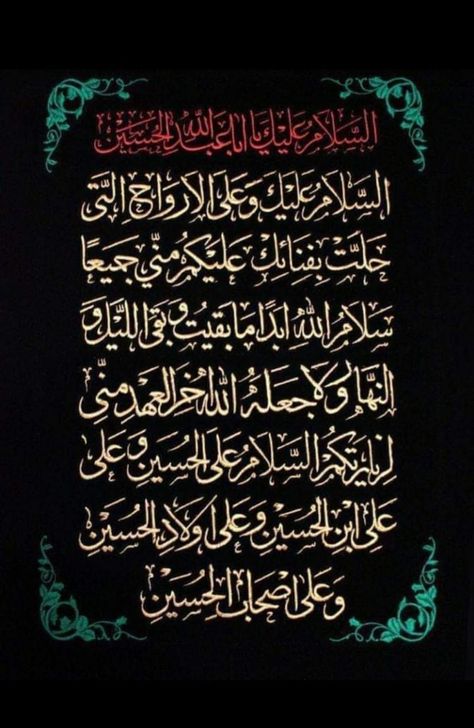 السلام عليك يا ابا عبد الله الحسين
السلام عليك وعلى الارواح التي
حلت بفنائك عليكم مني جميعا
سلام الله ابدا ما بقيت وبقي الليل و
النهار ولا جعله الله اخر العهد مني
لزيارتكم السلام على الحسين وعلى
علي ابن الحسين وعلى اولاد الحسين
وعلى اصحاب الحسين